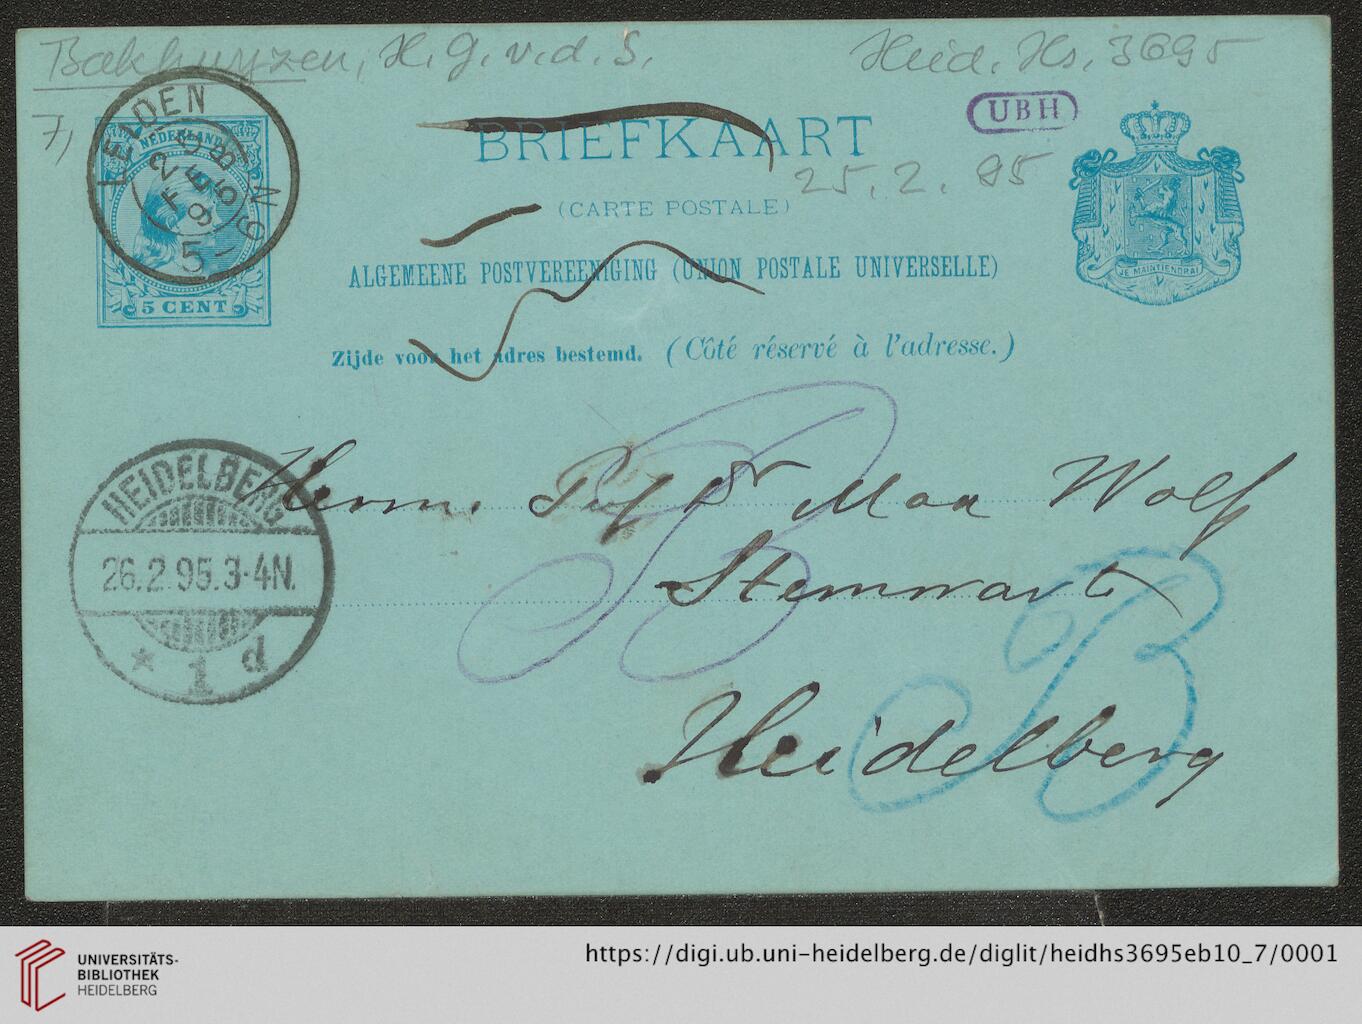 Bakhuyzen, H. G. v. d. S.
Heid. Hs. 3695
7,
LEIDEN
25 FEB 95
5 - 6N
NEDERLAND
5 CENT
BRIEFKAART
UBH
25.2.95
(CARTE POSTALE)
ALGEMEENE POSTVEREENIGING (UNION POSTALE UNIVERSELLE)
JE MAINTIENDRAI
Zijde voor het adres bestemd. (Côté réservé à l'adresse.)
HEIDELBERG
26.2.95.3-4N.
* 1 d
Herrn. Prof Dr Max Wolf
Sternwarte
Heidelberg
B
B
UNIVERSITÄTS-
BIBLIOTHEK
HEIDELBERG
https://digi.ub.uni-heidelberg.de/diglit/heidhs3695eb10_7/0001